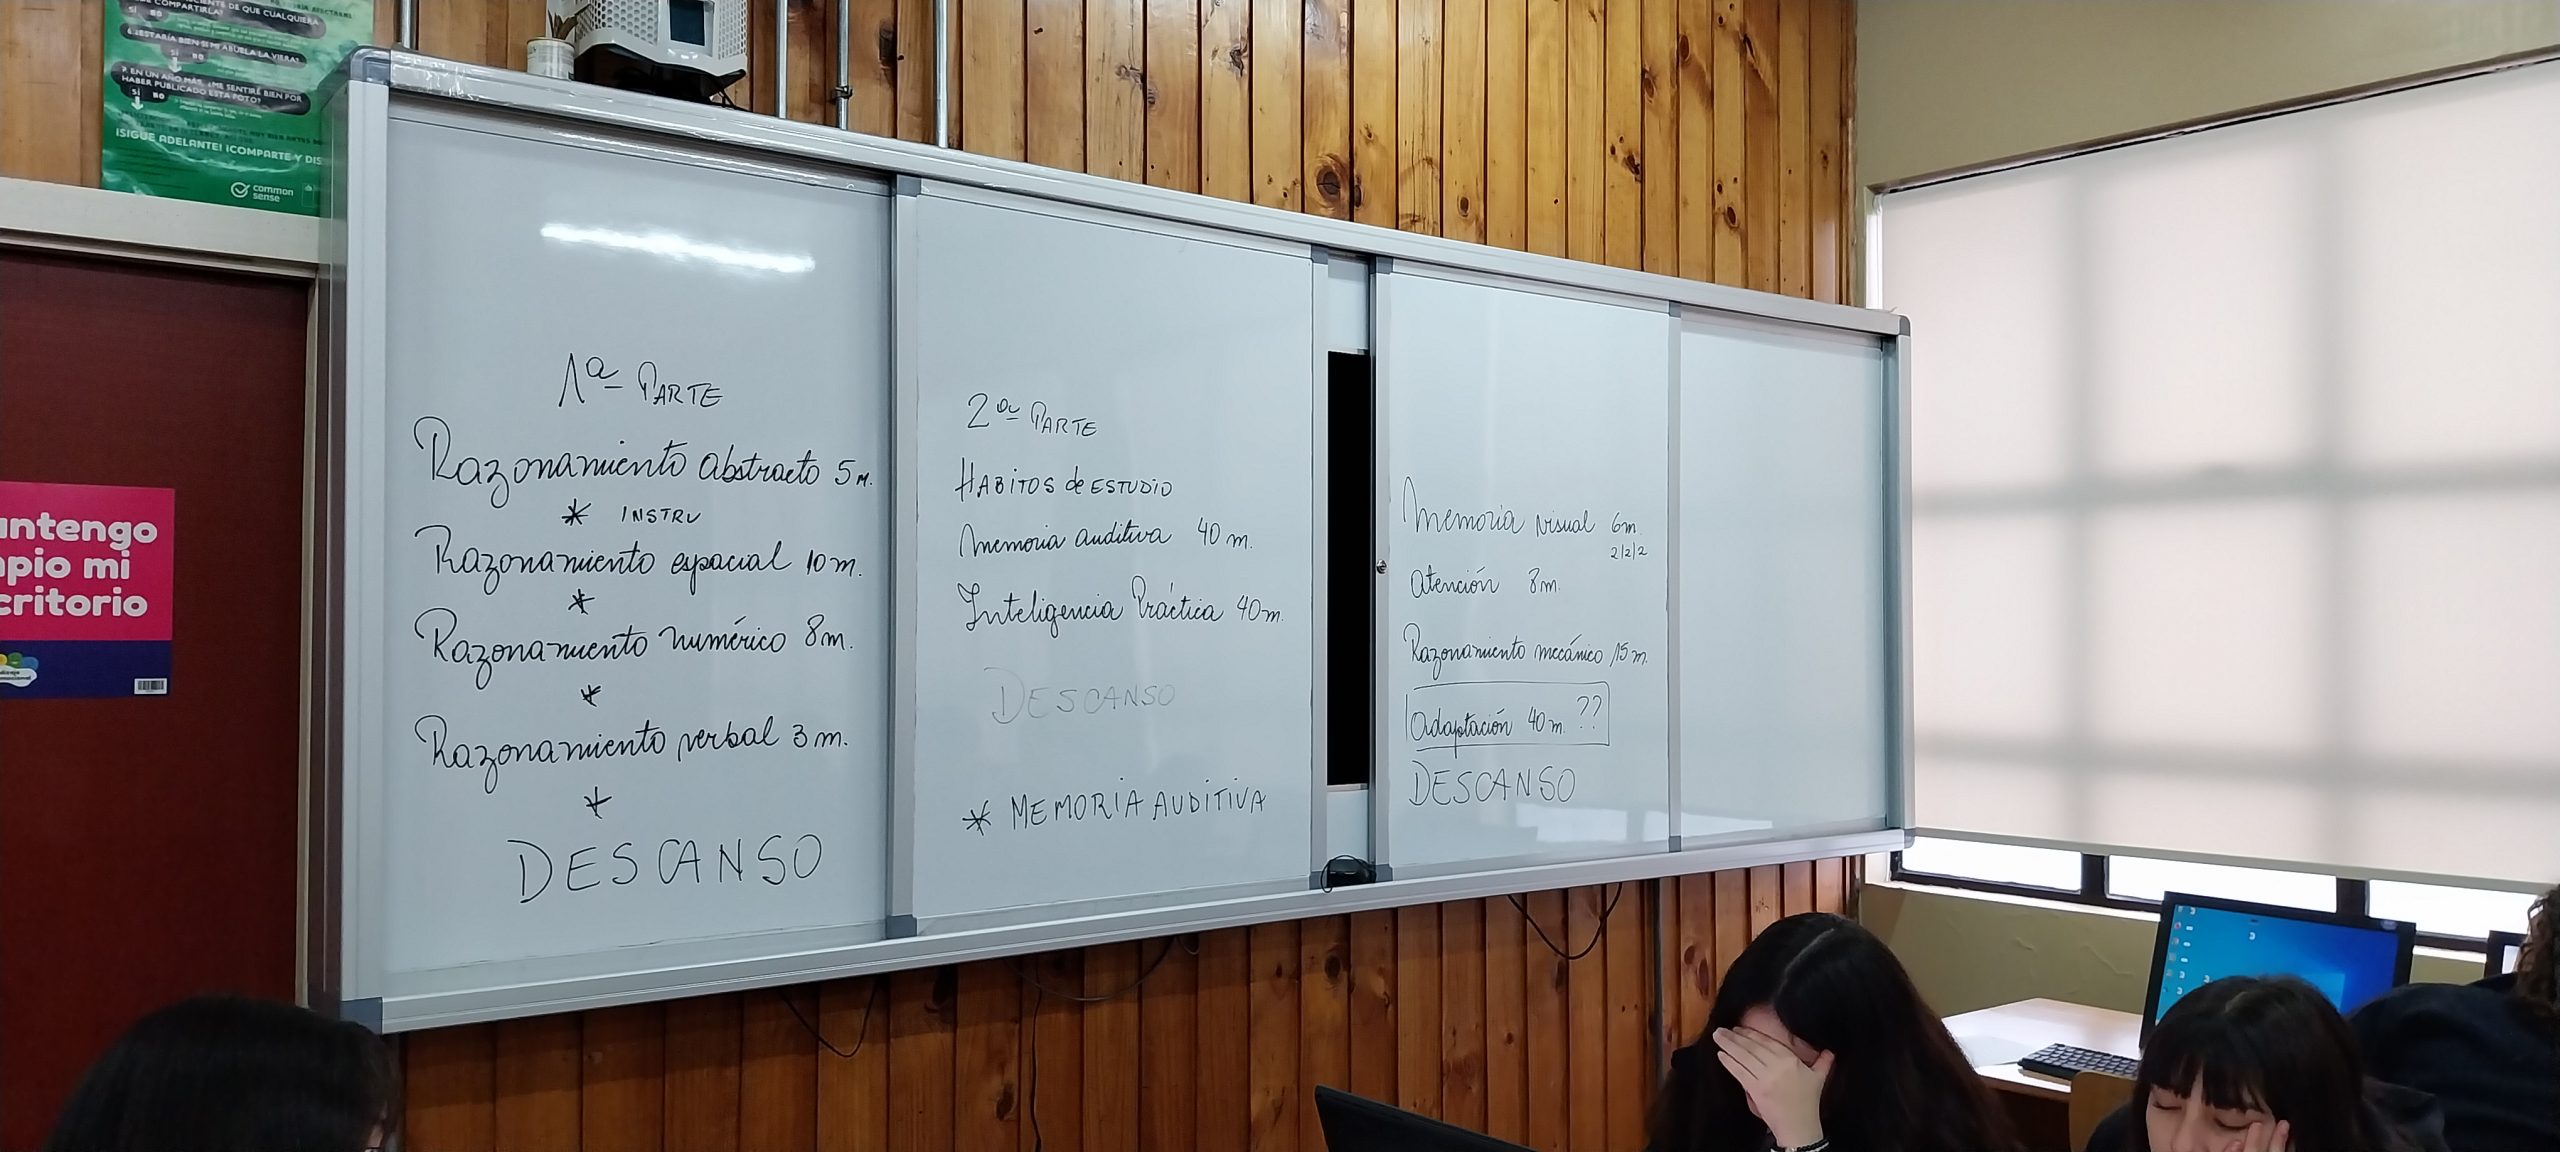 CIENTE DE QUE CUALQUIERA
COMPARTIRLA?
SÍ NO
6. ¿ESTARÍA BIEN SI MI ABUELA LA VIERA?
SÍ NO
7. EN UN AÑO MÁS, ¿ME SENTIRÉ BIEN POR
HABER PUBLICADO ESTA FOTO?
SÍ NO
¡SIGUE ADELANTE! ¡COMPARTE Y DIS
common
sense
antengo
pio mi
critorio
1ª PARTE
Razonamiento abstracto 5 m.
* INSTRU
Razonamiento espacial 10 m.
*
Razonamiento numérico 8 m.
*
Razonamiento verbal 3 m.
*
DESCANSO
2ª PARTE
HABITOS de ESTUDIO
Memoria auditiva 40 m.
Inteligencia Práctica 40 m.
DESCANSO
* MEMORIA AUDITIVA
Memoria visual 6 m.
2/2/2
Atención 8 m.
Razonamiento mecánico 15 m.
Adaptación 40 m. ??
DESCANSO